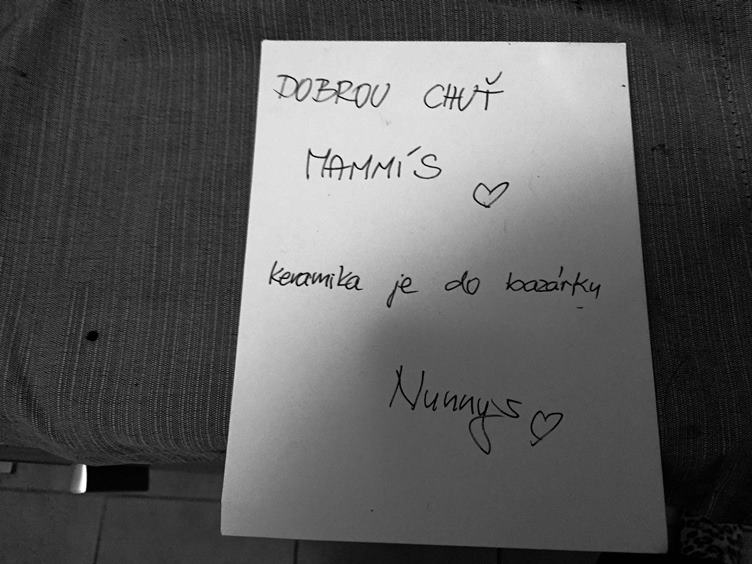 DOBROU CHUŤ
MAMMÍS ♡
keramika je do bazárku
Nunnys ♡